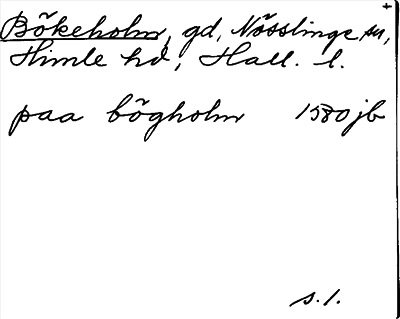 Bökeholm, gd, Nösslinge sn,
Himle hd, Hall. l.
paa bögholm 1580 jb
s. 1.